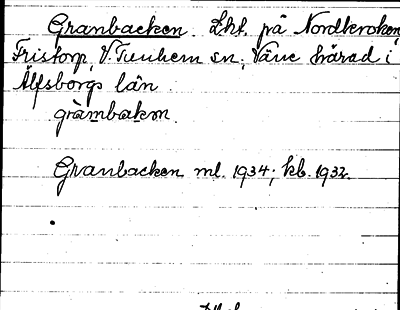 Granbacken. Lht. på Nordkroken,
Fristorp, V. Tunhem sn; Väne härad i
Älfsborgs län.
gràmbakɷn.
Granbacken ml. 1934; kb. 1932.